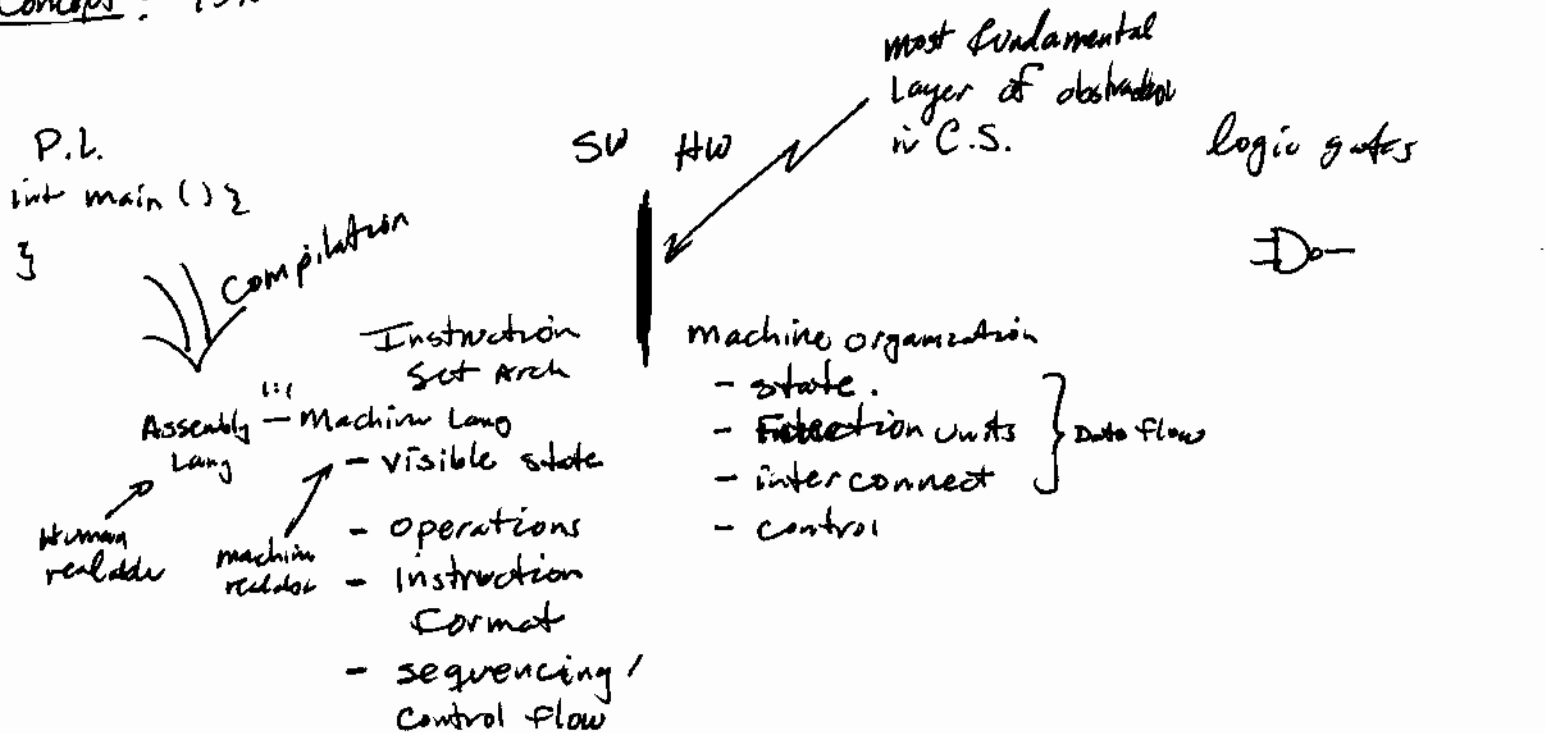 Concept :
most fundamental
Layer of abstraction
in C.S.
P.L.
int main () {
}
Compilation
SW HW
logic gates
Instruction
Set Arch
1:1
Assembly — Machine Lang
Lang
- visible state
- operations
- instruction
Format
- sequencing /
Control flow
Human
readable
machine
readable
machine organization
- state.
- Function units
- interconnect
- control
Data flow